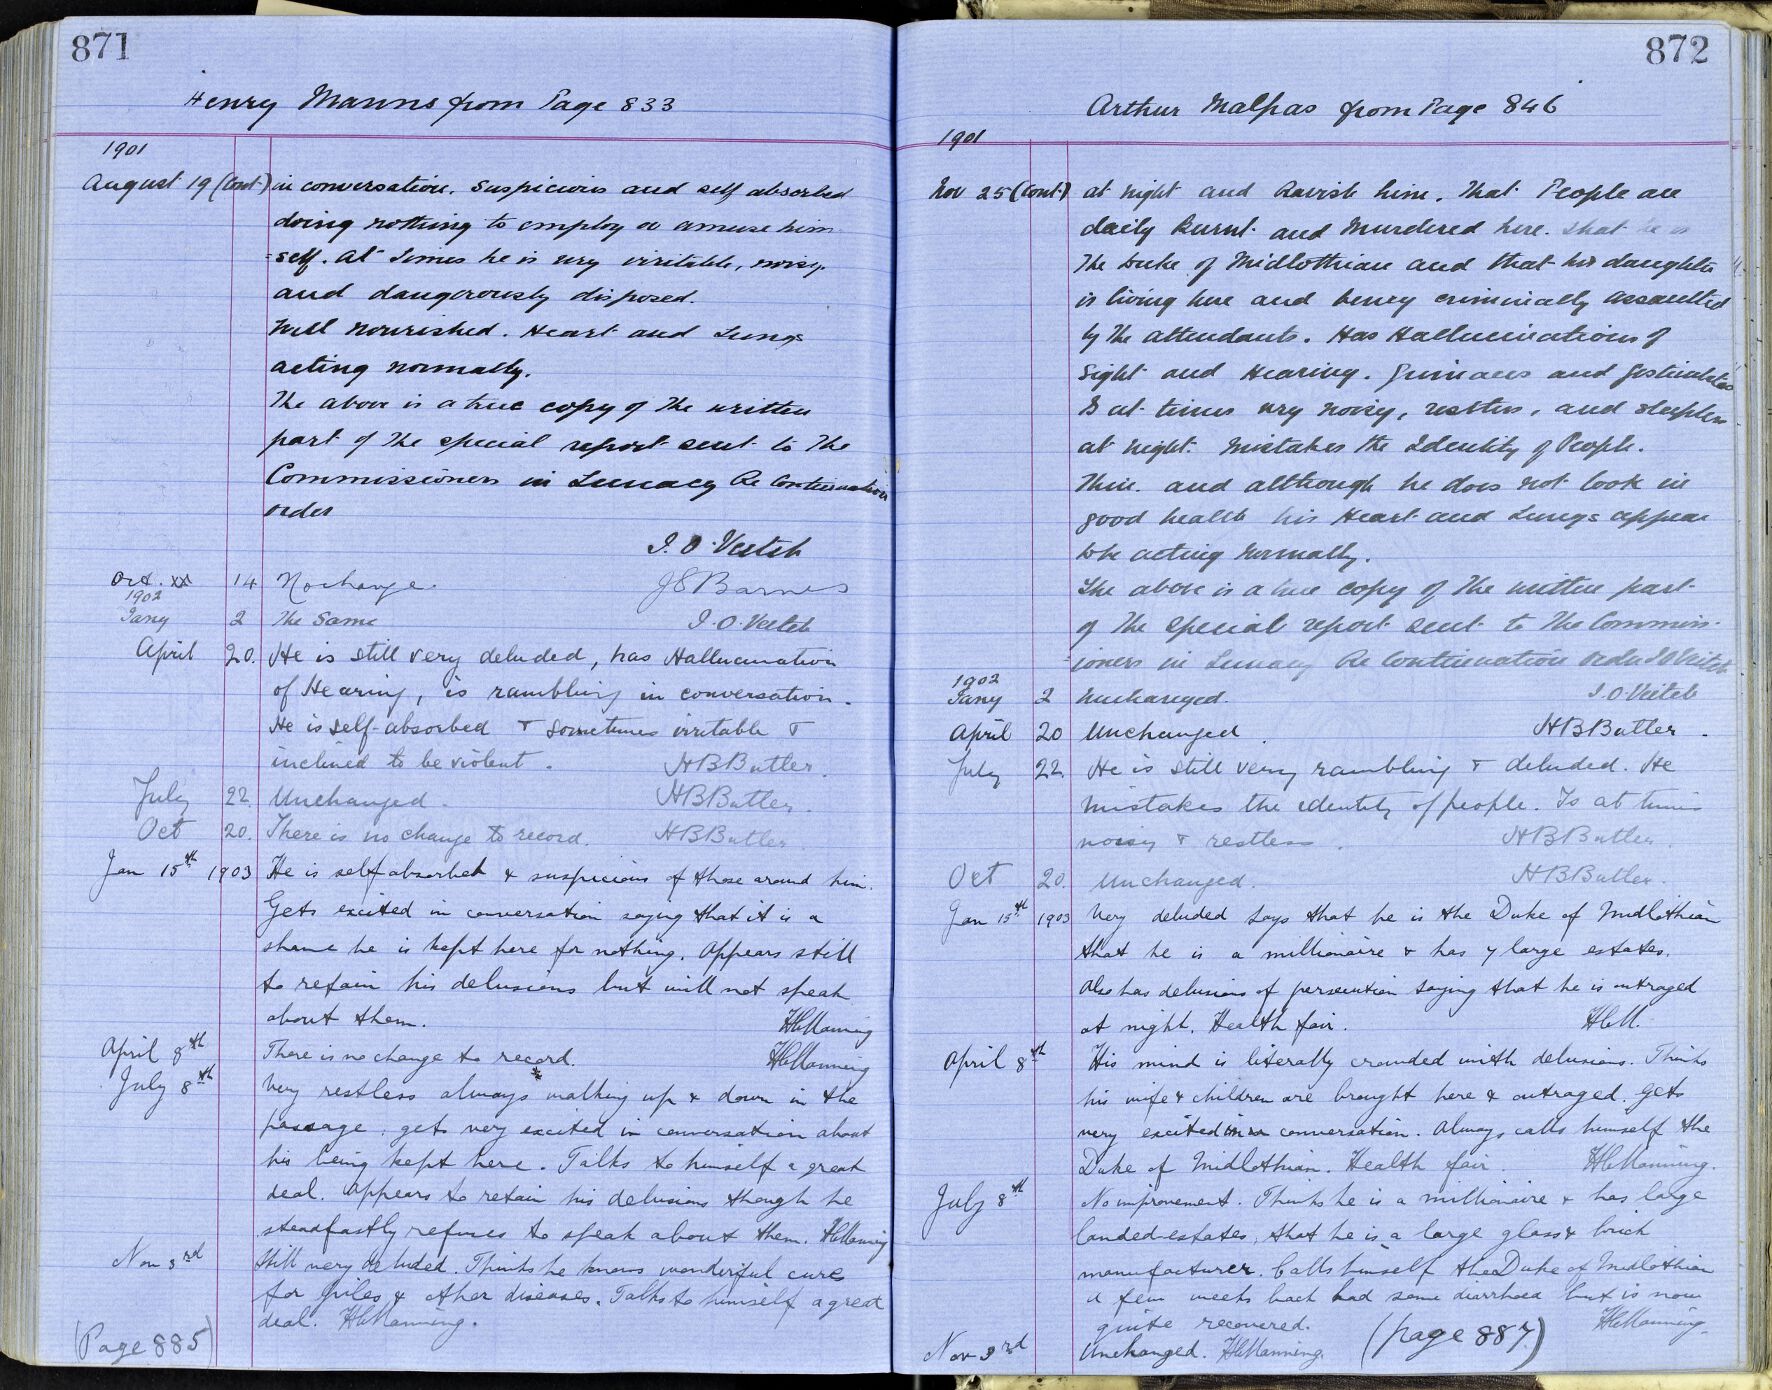 871
Henry Manns from Page 833
1901
August 19 (Cont.) in conversation. Suspicious and self absorbed
doing nothing to employ or amuse him
=self. At times he is very irritable, noisy
and dangerously disposed.
Well nourished. Heart and Lungs
acting normally.
The above is a true copy of the written
part of the special report sent to the
Commissioners in Lunacy Re Continuation
order
J. O. Veitch
Oct. 14 No change. J S Barnes
1902
Jany 2 The Same J. O. Veitch
April 20. He is still very deluded, has Hallucination
of Hearing, is rambling in conversation.
He is self-absorbed & sometimes irritable &
inclined to be violent. H B Butler.
July 22. Unchanged. H B Butler.
Oct 20. There is no change to record. H B Butler.
Jan 15th 1903 He is self absorbed & suspicious of those around him.
Gets excited in conversation saying that it is a
shame he is kept here for nothing. Appears still
to retain his delusions but will not speak
about them. H C Manning
April 8th There is no change to record. H C Manning
July 8th Very restless always walking up & down in the
passage. gets very excited in conversation about
his being kept here. Talks to himself a great
deal. Appears to retain his delusions though he
steadfastly refuses to speak about them. H C Manning
Nov 3rd Still very deluded. Thinks he knows wonderful cures
for piles & other diseases. Talks to himself a great
deal. H C Manning.
(Page 885)
872
Arthur Malpas from Page 846
1901
Nov 25 (Cont.) at night and Ravish him. That People are
daily Burnt and Murdered here. that he is
The Duke of Midlothian and that his daughter
is living here and being criminally assaulted
by the attendants. Has Hallucinations of
Sight and Hearing. Grimaces and Gesticulates
Is at times very noisy, restless, and sleepless
at night. Mistakes the Identity of People.
Thin. and although he does not look in
good health his Heart and Lungs appear
to be acting normally.
The above is a true copy of the written part
of the special report sent to the Commiss-
=ioners in Lunacy Re Continuation Order J O Veitch
1902
Jany 2 Unchanged. J. O. Veitch
April 20 Unchanged. H B Butler.
July 22. He is still very rambling & deluded. He
mistakes the identity of people. Is at times
noisy & restless. H B Butler.
Oct 20. Unchanged. H B Butler.
Jan 15th 1903 Very deluded says that he is the Duke of Midlothian
that he is a millionaire & has 7 large estates.
Also has delusions of persecution saying that he is outraged
at night. Health fair. H C M.
April 8th His mind is literally crowded with delusions. Thinks
his wife & children are brought here & outraged. Gets
very excited in conversation. Always calls himself the
Duke of Midlothian. Health fair. H C Manning.
July 8th No improvement. Thinks he is a millionaire & has large
landed estates, that he is a large glass & brick
manufacturer. Calls himself the Duke of Midlothian
A few weeks back had some diarrhoea but is now
quite recovered. H C Manning.
Nov 3rd Unchanged. H C Manning. (page 887)